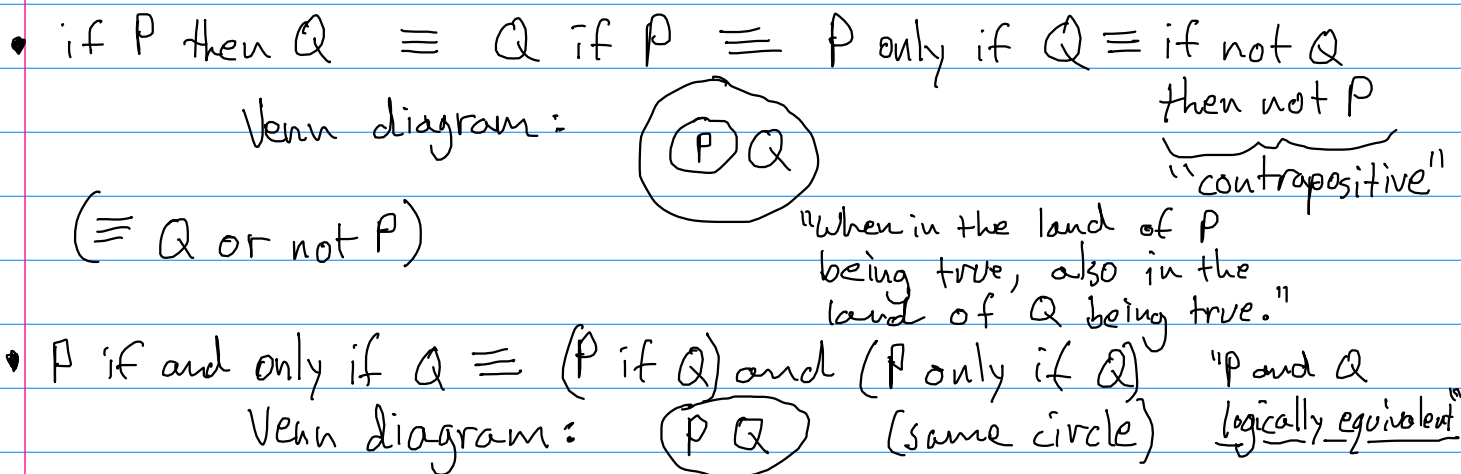 • if P then Q ≡ Q if P ≡ P only if Q ≡ if not Q
then not P
Venn diagram: P Q
"contrapositive"
(≡ Q or not P)
"When in the land of P
being true, also in the
land of Q being true."
• P if and only if Q ≡ (P if Q) and (P only if Q) "P and Q
logically equivalent"
Venn diagram: P Q (same circle)